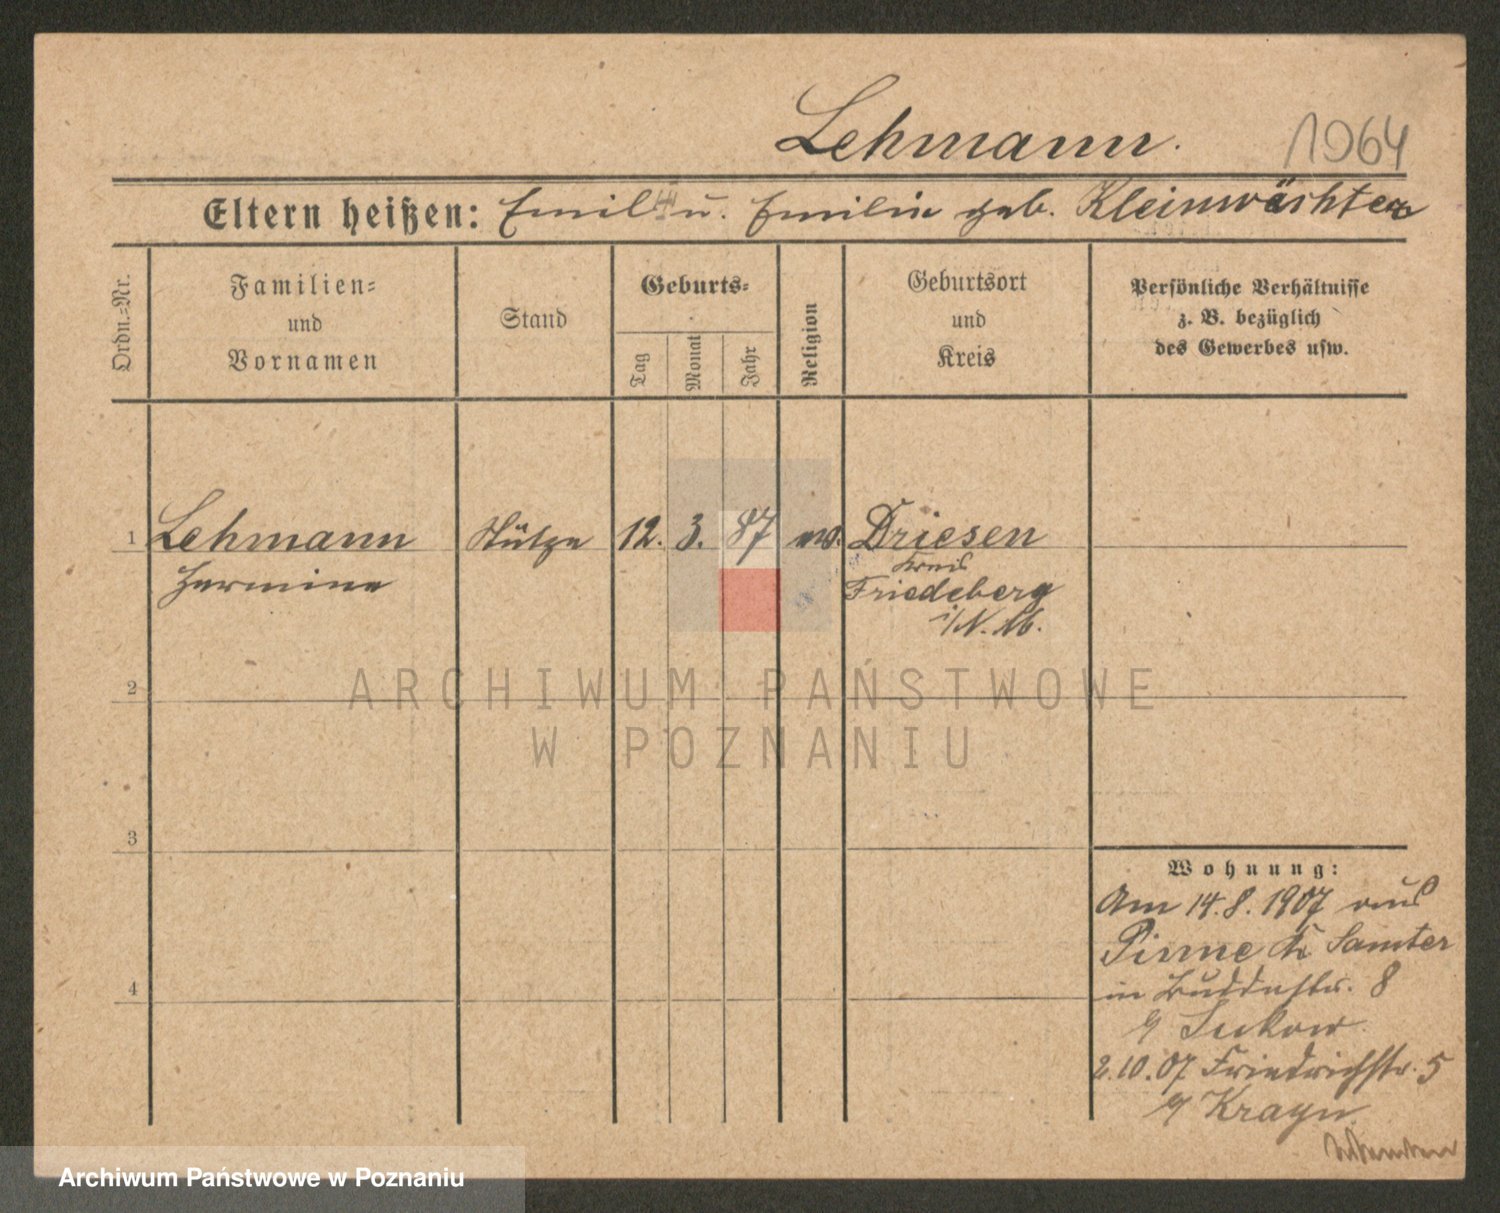 Lehmann.
1964
Eltern heißen: Emil u. Emilie geb. Kleinwächter
Ordn.-Nr.
Familien-
und
Vornamen
Stand
Geburts-
Tag
Monat
Jahr
Religion
Geburtsort
und
Kreis
Persönliche Verhältnisse
z. B. bezüglich
des Gewerbes usw.
1 Lehmann Stütze 12. 3. 87 ev. Driesen
Hermine
Kreis
Friedeberg
i/N. M.
2
3
4
Wohnung:
Am 14.8.1907 aus
Pinne Kr Samter
in Buddestr. 8
Lukow
2.10.07 Friedrichstr. 5
Krayn
ARCHIWUM PAŃSTWOWE
W POZNANIU
Archiwum Państwowe w Poznaniu